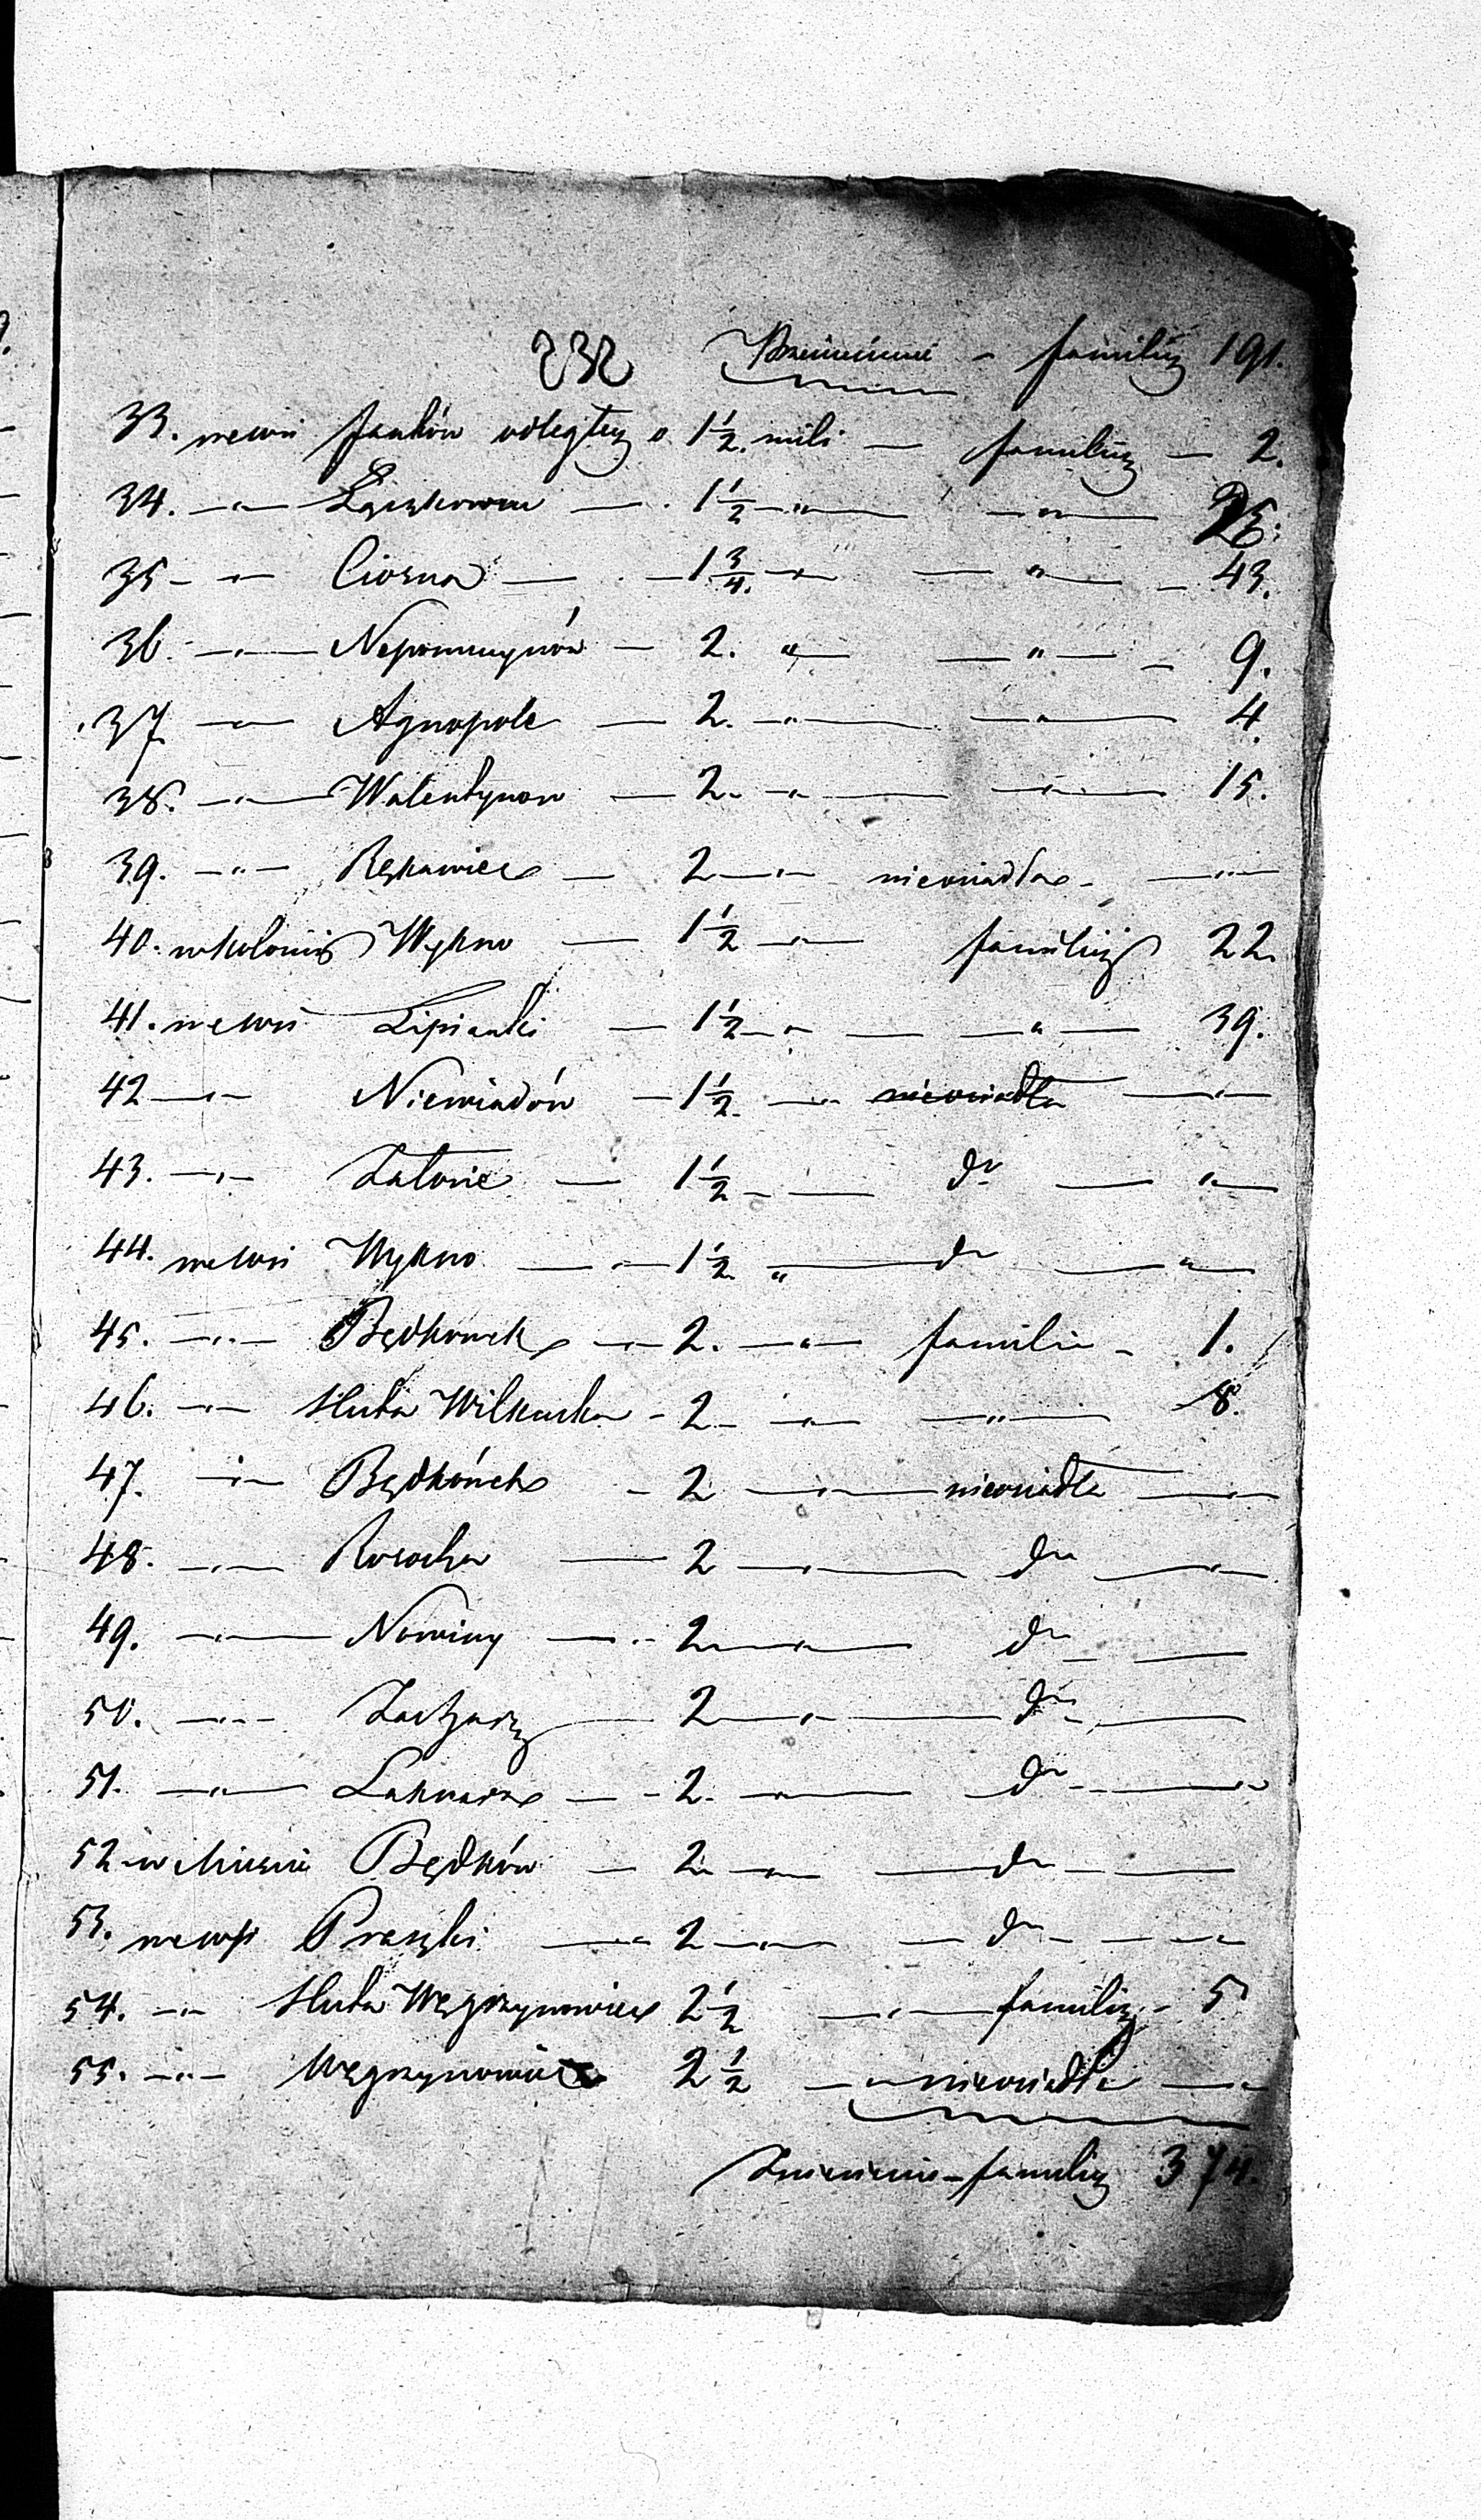 232 Przeniesienie - familiy 191.
33. we wsi Janków odległey o 1 1/2 mili — familiy — 2.
34. —"— Łaziskowie — 1 1/2 —"— —"— 35.
35 - —"— Ciosna — 1 3/4. —"— —"— - 43.
36. —"— Nepomucynów — 2. "— —"— - 9.
37 —"— Agnopole — 2. —"— —"— 4.
38. —"— Walentynow — 2. —"— —"— 15.
39. —"— Rękawiec — 2 —"— nieosiadła - —"—
40. w kolonii Wykno — 1 1/2 —"— familiy 22.
41. we wsi Lipianki — 1 1/2 —"— —"— 39.
42 —"— Niewiadów — 1 1/2. —"— nieosiadła —"—
43. —"— Zatonie — 1 1/2 - — do — "—
44. we wsi Wykno — — 1 1/2 " — do — "—
45. —"— Będkowek — 2. —"— familia - 1.
46. —"— Huta Wilkucka - 2 - —"— —"— 8.
47. —"— Będkówek - 2 —"— nieosiadła —"—
48. —"— Rosocha — 2 —"— do —"—
49. —"— Nowiny — 2 —"— do - —
50. —"— Zacharz — 2 —"— do - —
51. —"— Łaknarz — - 2. —"— do - —"
52 w Mieście Będków — 2 —"— — do - —
53. we wsi Praszki — 2 —"— — do - — —
54. —"— Huta Węgrzynowice 2 1/2 —"— familiy - 5
55. —"— Węgrzynowice 2 1/2 —"— nieosiadła —"—
Zniesienie - familiy 374.